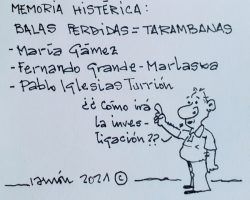 MEMORIA HISTÉRICA:
BALAS PERDIDAS = TARAMBANAS
- María Gámez
- Fernando Grande-Marlaska
- Pablo Iglesias Turrión
¿¿Cómo irá
la inves-
tigación??
ramón 2021 ©